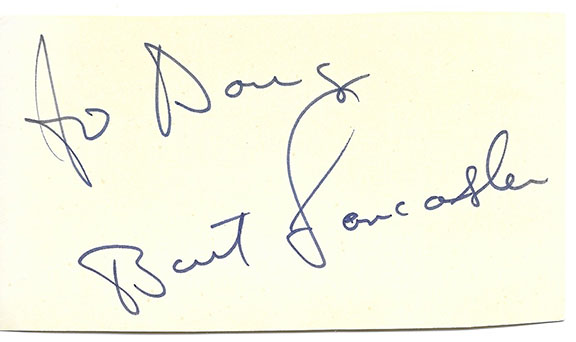 To Doug
Burt Lancaster